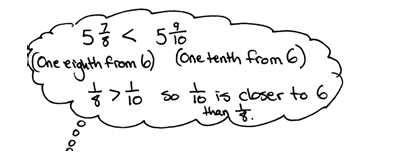 5 7/8 < 5 9/10
(One eighth from 6) (One tenth from 6)
1/8 > 1/10 so 1/10 is closer to 6
than 1/8.